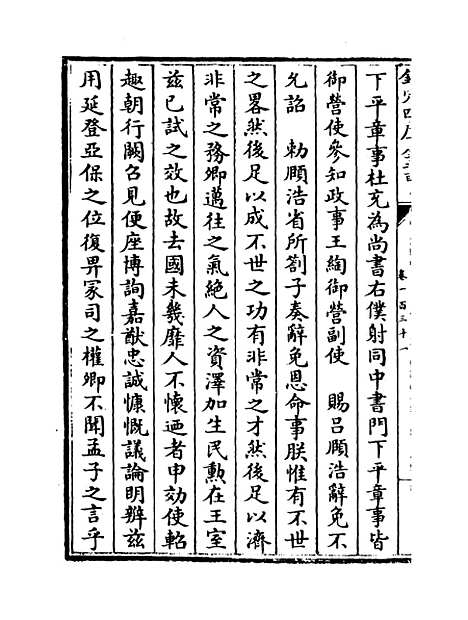 欽定四庫全書
卷一百三十一
下平章事杜充為尚書右僕射同中書門下平章事皆
御營使參知政事王綯御營副使　賜吕頤浩辭免不
允詔　勅頤浩省所劄子奏辭免恩命事朕惟有不世
之畧然後足以成不世之功有非常之才然後足以濟
非常之務卿邁往之氣絶人之資澤加生民勲在王室
兹已試之效也故去國未幾靡人不懷廼者申劾使軺
趣朝行闕召見便座博詢嘉猷忠誠慷慨議論明辨兹
用延登亞保之位復畀冡司之權卿不聞孟子之言乎